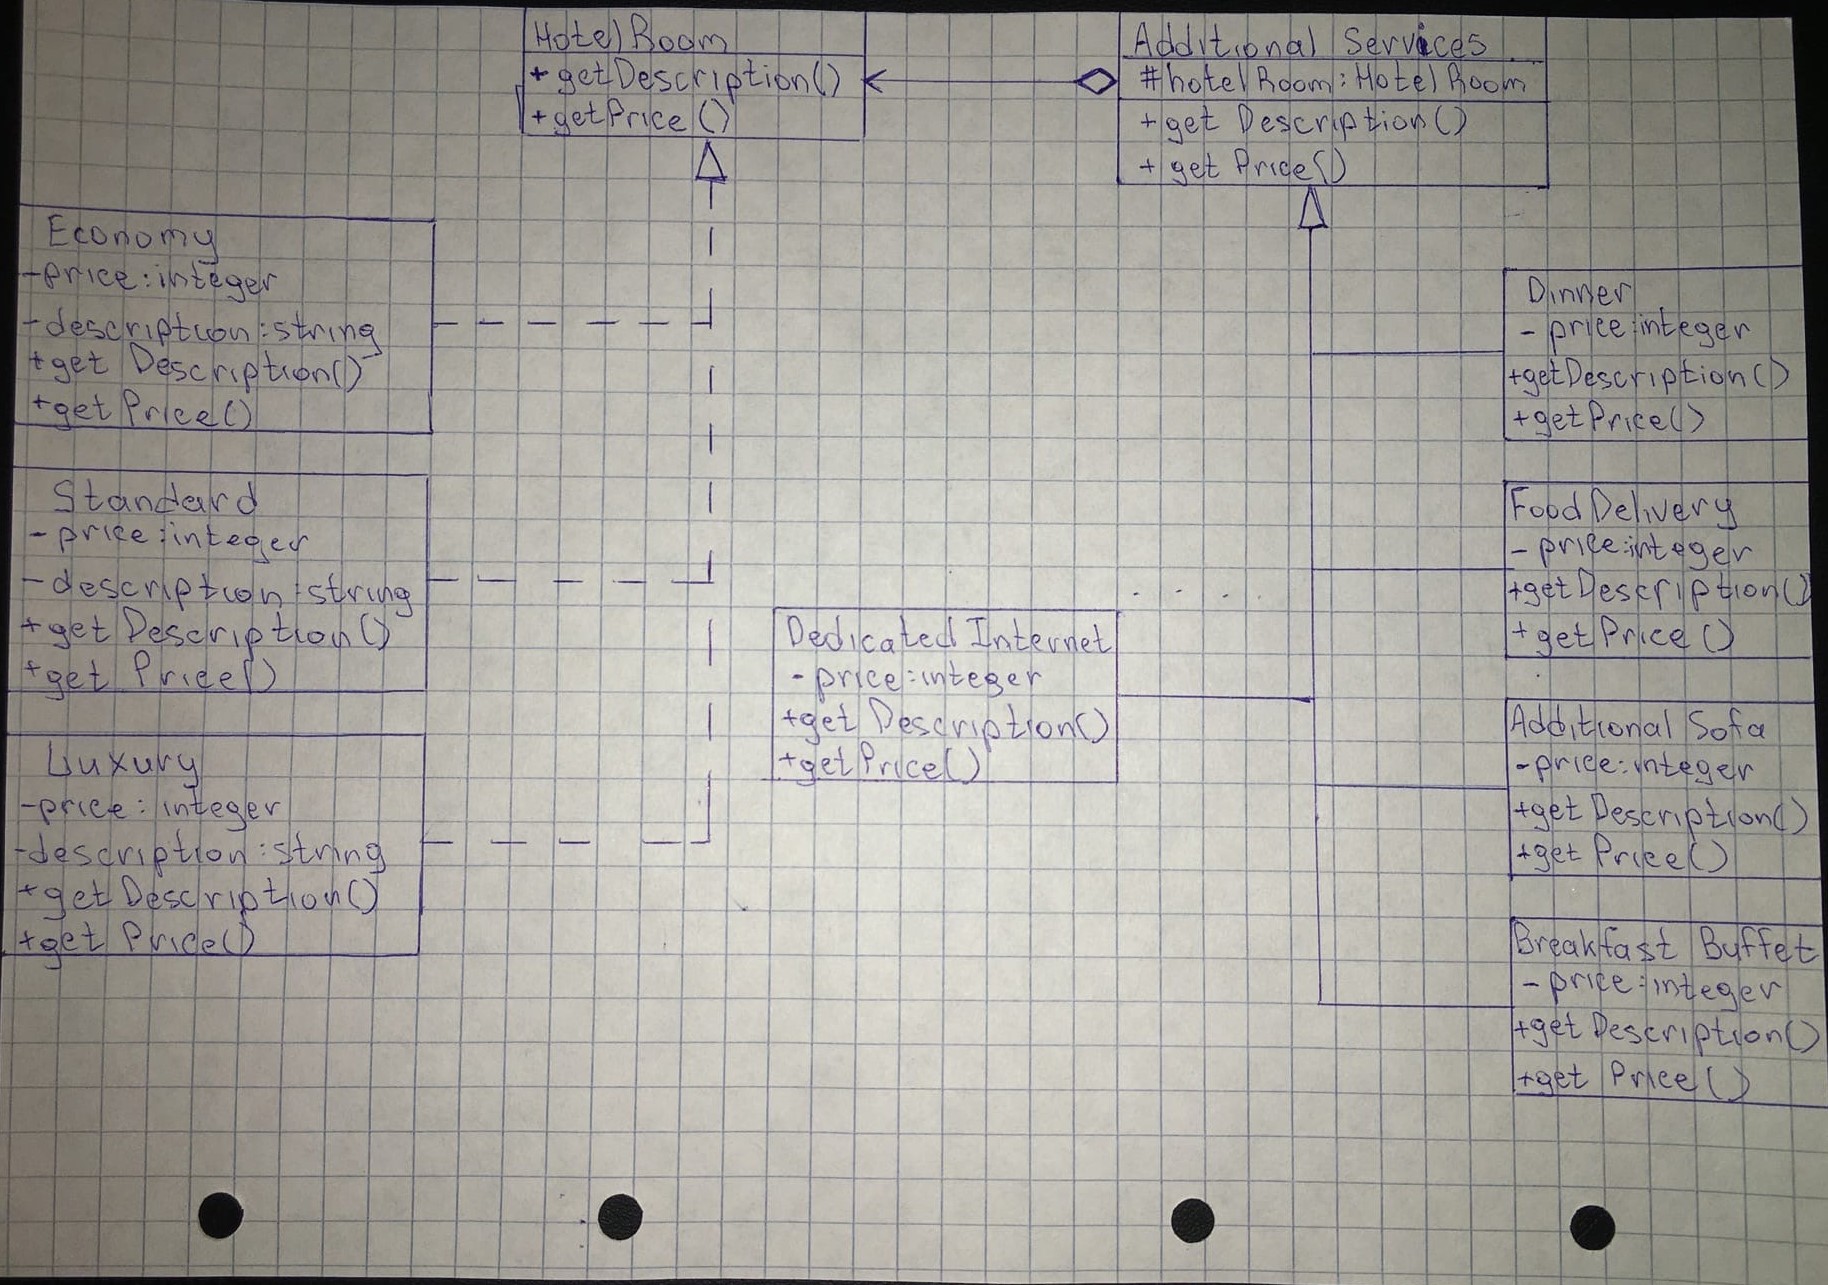 HotelRoom
+ getDescription()
+ getPrice()
Additional Services
#hotelRoom: HotelRoom
+ get Description()
+ get Price()
Economy
-price: integer
-description: string
+get Description()
+getPrice()
Standard
- price: integer
- description: string
+ get Description()
+get Price()
Luxury
-price: integer
-description: string
+getDescription()
+get Price()
Dedicated Internet
- price: integer
+get Description()
+getPrice()
Dinner
- price: integer
+getDescription()
+getPrice()
FoodDelivery
- price: integer
+getDescription()
+ getPrice()
Additional Sofa
-price: integer
+get Description()
+get Price()
Breakfast Buffet
- price: integer
+get Description()
+get Price()